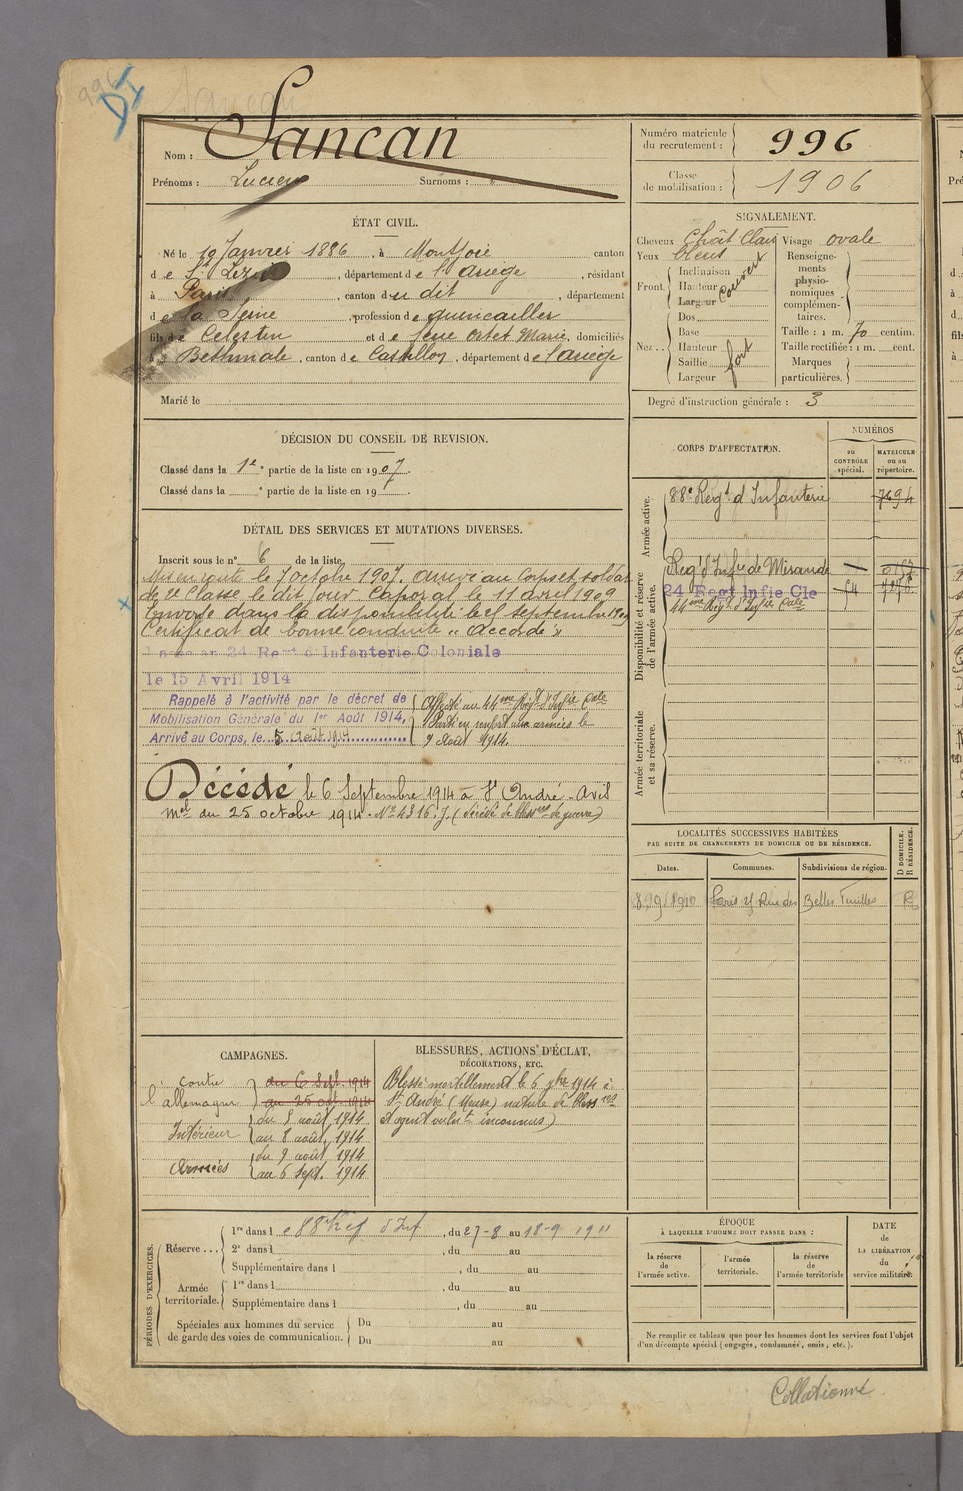 996
DI
Sancan
Nom : Sancan
Prénoms : Lucien Surnoms : "
Numéro matricule du recrutement : 996
Classe de mobilisation : 1906
ÉTAT CIVIL.
Né le 19 Janvier 1886, à Montjoie canton
de St Lizier, département de l'Ariège, résidant
à Paris, canton du dit, département
de la Seine, profession de quincailler
fils de Célestin et de feue Ortet Marie, domiciliés
à Bethmale, canton de Castillon, département de l'Ariège
Marié le
SIGNALEMENT.
Cheveux Chât Clair Visage ovale
Yeux bleus
Front. Inclinaison Hauteur Largeur Couvert
Nez.. Dos Base Hauteur Saillie Largeur fort
Renseignements physionomiques complémentaires.
Taille : 1 m. 70 centim.
Taille rectifiée : 1 m. cent.
Marques particulières.
Degré d'instruction générale : 3
DÉCISION DU CONSEIL DE REVISION.
Classé dans la 1e partie de la liste en 1907.
Classé dans la ° partie de la liste en 19
CORPS D'AFFECTATION.
NUMÉROS
au CONTRÔLE spécial.
MATRICULE ou au répertoire.
Armée active.
88e Regt d'Infanterie 7694
Disponibilité et réserve de l'armée active.
Regt d'Infie de Mirande
24 Regt Infie Cle
44me Regt d'Infie Cale
Armée territoriale et sa réserve.
DÉTAIL DES SERVICES ET MUTATIONS DIVERSES.
Inscrit sous le n° 6 de la liste
Mis en route le 7 octobre 1907. Arrivé au Corps et soldat
de 2e Classe le dit jour. Caporal le 11 avril 1909
Envoyé dans la disponibilité le 25 septembre 1909
Certificat de bonne conduite « Accordé »
Passé au 24 Regt d'Infanterie Coloniale
le 15 Avril 1914
Rappelé à l'activité par le décret de
Mobilisation Générale du 1er Août 1914,
Arrivé au Corps, le 5 août 1914
Affecté au 44me Regt d'Infie Cale
Parti en renfort aux armées le
9 Août 1914.
Décédé le 6 Septembre 1914 à St André - Avis
mel du 25 octobre 1914. No 4316. J. (décédé de blessures de guerre)
LOCALITÉS SUCCESSIVES HABITÉES
PAR SUITE DE CHANGEMENTS DE DOMICILE OU DE RÉSIDENCE.
Dates. Communes. Subdivisions de région. D DOMICILE. R RÉSIDENCE.
Paris 25 Rue des Belles Feuilles R
CAMPAGNES.
contre l'allemagne
du 6 Sept. 1914
au 25 oct 1914
Intérieur
du 5 août 1914
au 8 août 1914
Armées
du 9 août 1914
au 6 Sept. 1914
BLESSURES, ACTIONS D'ÉCLAT,
DÉCORATIONS, ETC.
Blessé mortellement le 6 7bre 1914 à
St André (Meuse) nature de bless res
et agent vulnt inconnus)
PÉRIODES D'EXERCICES.
Réserve... 1re dans l e 88e Reg d'Inf, du 27-8 au 18-9 1911
2e dans l , du au
Supplémentaire dans l , du au
Armée territoriale. 1re dans l , du au
Supplémentaire dans l , du au
Spéciales aux hommes du service Du au
de garde des voies de communication. Du au
ÉPOQUE
À LAQUELLE L'HOMME DOIT PASSER DANS :
la réserve de l'armée active.
l'armée territoriale.
la réserve de l'armée territoriale
DATE de LA LIBÉRATION du service militaire.
Ne remplir ce tableau que pour les hommes dont les services font l'objet
d'un décompte spécial (engagés, condamnés, omis, etc.).
Collationné